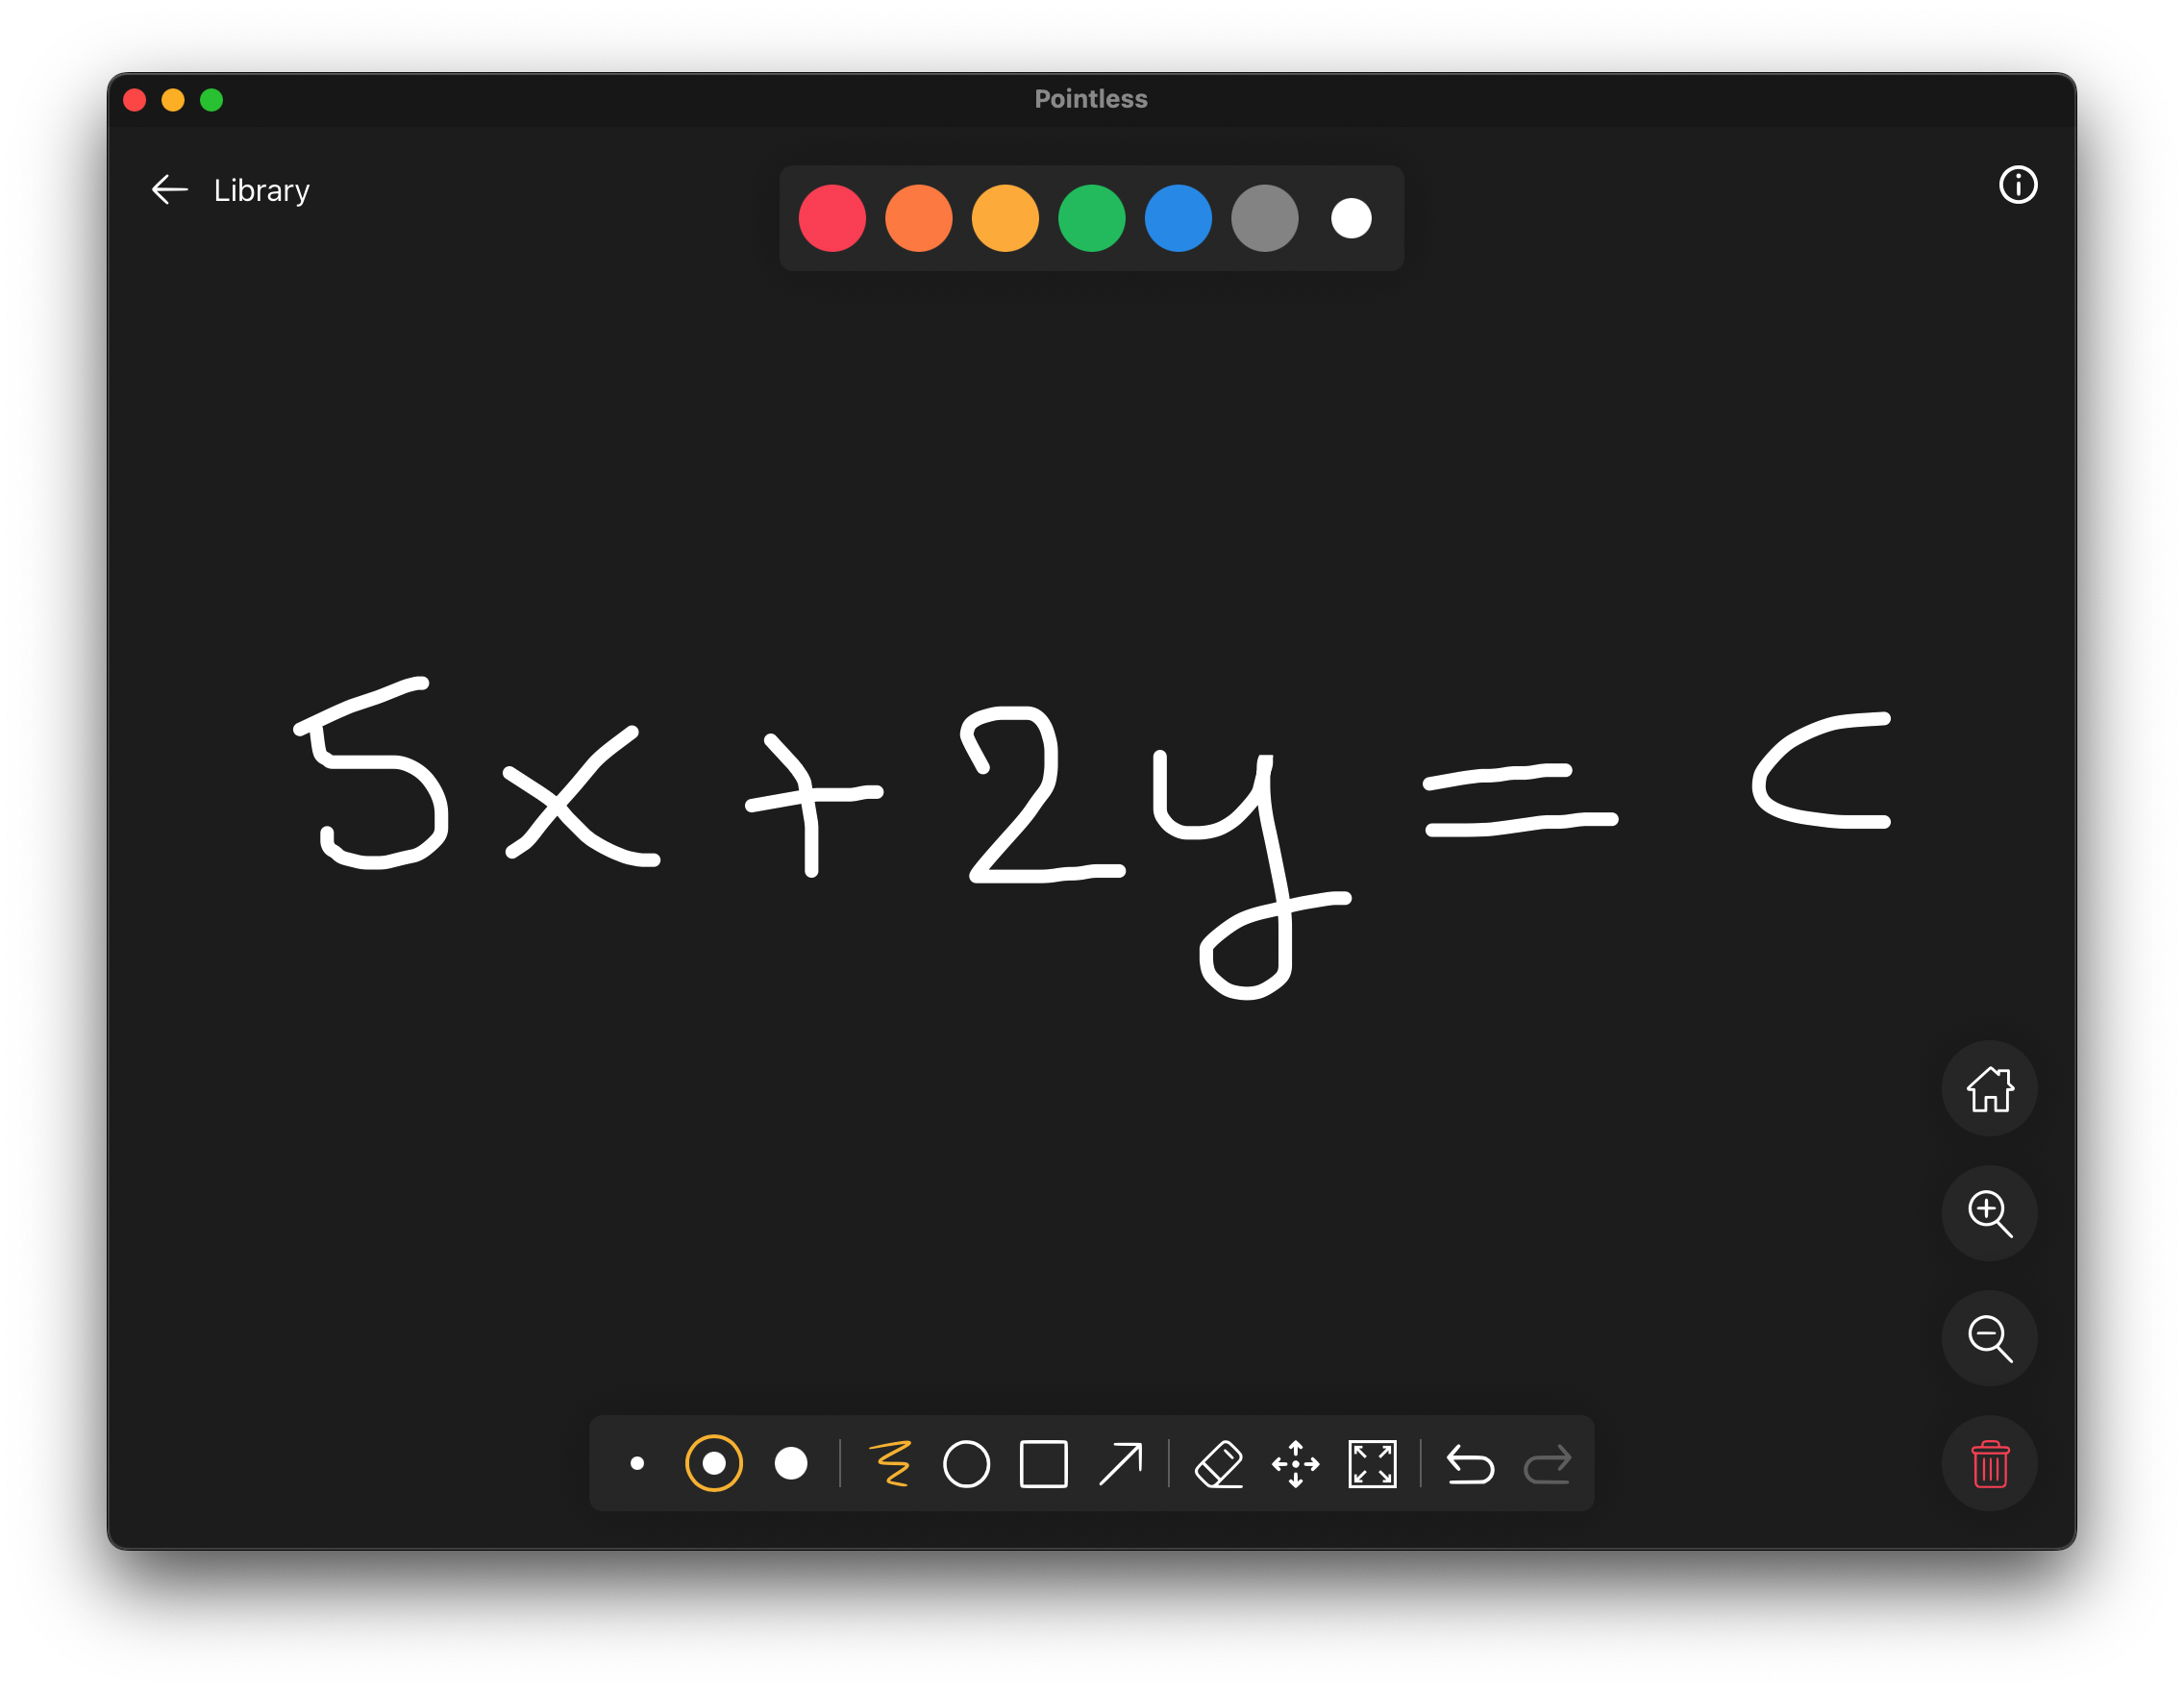 Pointless
Library
5x+2y = c